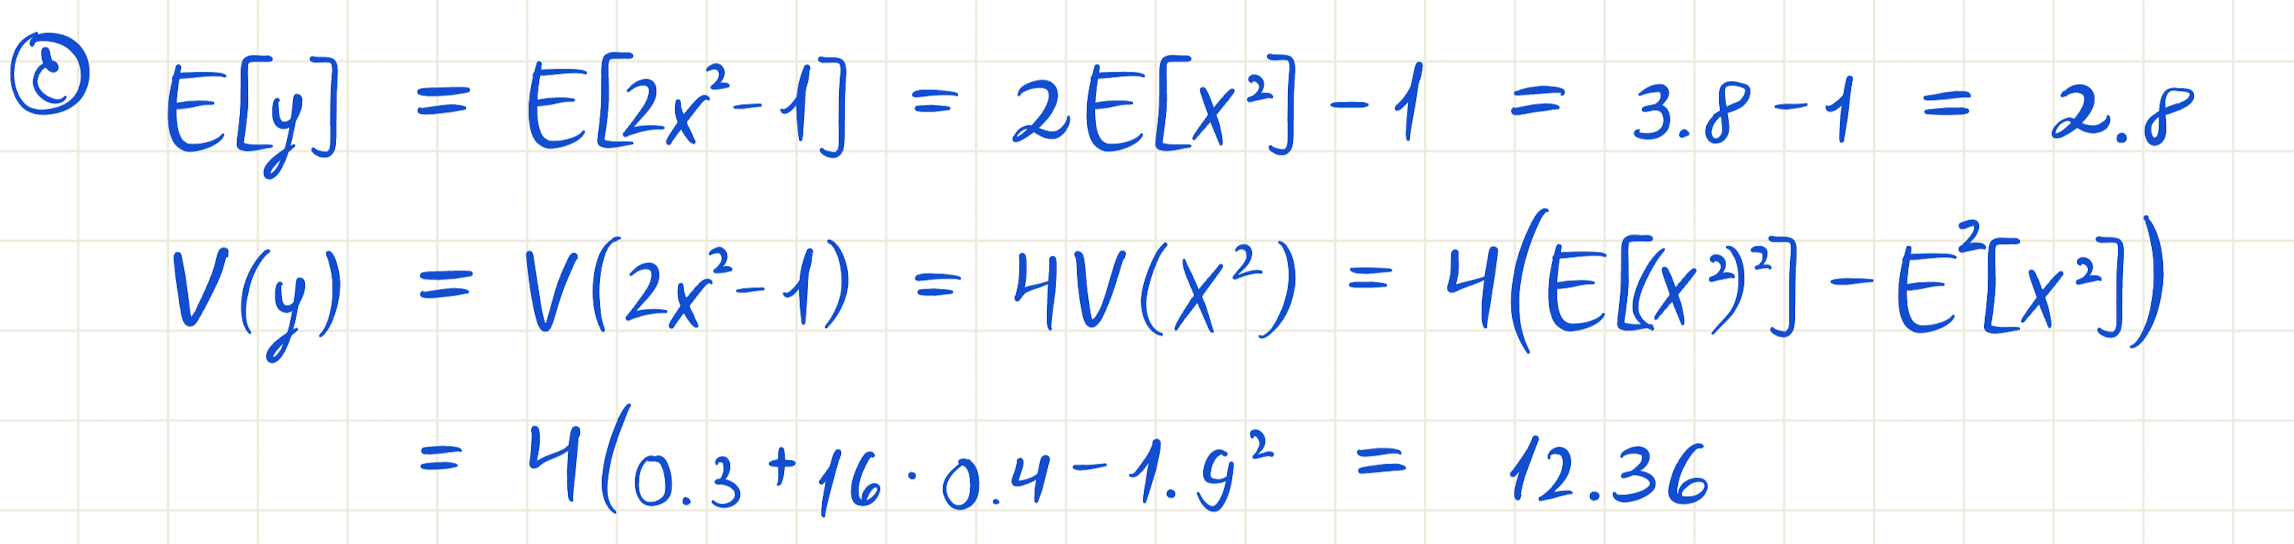 ⓒ E[y] = E[2x²-1] = 2E[x²] - 1 = 3.8 - 1 = 2.8
V(y) = V(2x²-1) = 4V(x²) = 4(E[(x²)²] - E²[x²])
= 4(0.3 + 16 · 0.4 - 1.9² = 12.36